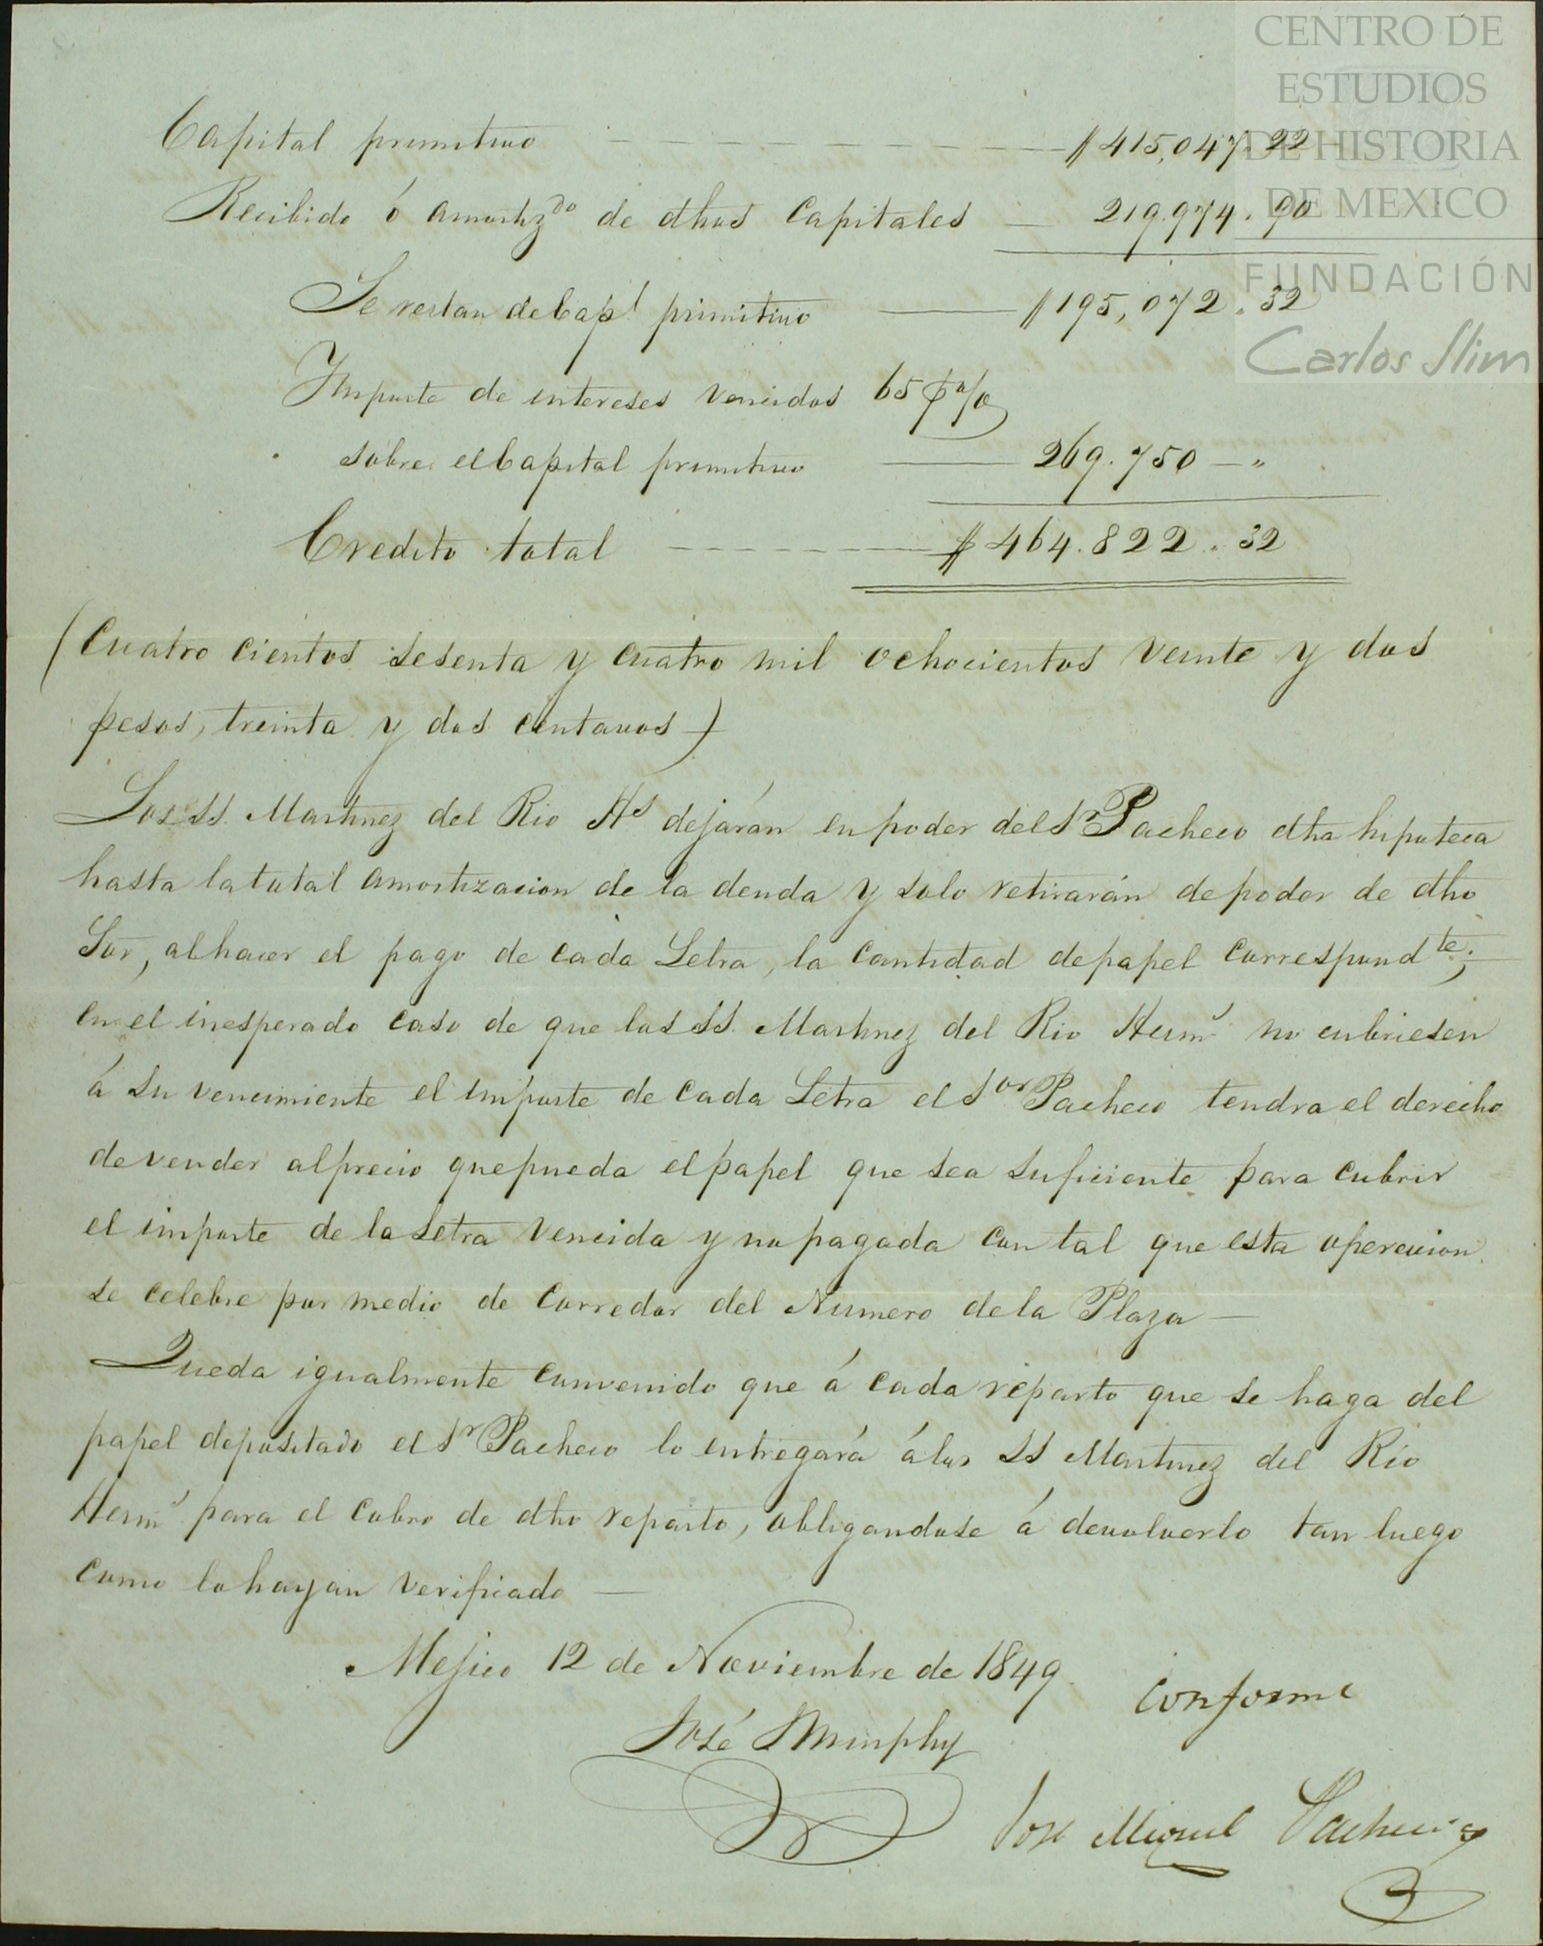 CENTRO DE
ESTUDIOS
DE HISTORIA
DE MEXICO
FUNDACIÓN
Carlos Slim
Capital primitivo $ 415,047. 22
Recibido ó amortizdo de dhos capitales 219.974. 90
Se restan del Capl primitivo $ 195,072. 32
Importe de intereses vencidos 65 p%
sobre el Capital primitivo 269.750 – "
Credito total $ 464.822. 32
(Cuatro cientos sesenta y cuatro mil ochocientos veinte y dos
pesos, treinta y dos centavos)
Los SS. Martinez del Rio Hs dejarán en poder del Sr Pacheco dha hipoteca
hasta la total amortizacion de la deuda y solo retirarán de poder de dho
Sor, al hacer el pago de cada Letra, la cantidad de papel correspondte;
en el inesperado caso de que los SS. Martinez del Rio Herms no cubriesen
á su vencimiente el importe de cada Letra el Sor Pacheco tendra el derecho
de vender al precio que pueda el papel que sea suficiente para cubrir
el importe de la Letra vencida y no pagada con tal que esta opereucion
se celebre por medio de Corredor del Numero de la Plaza –
Queda igualmente convenido que á cada reparto que se haga del
papel depositado el Sr Pacheco lo entregará á los SS Martinez del Rio
Herms para el cobro de dho reparto, obligandose á devolverlo tan luego
como lo hayan verificado –
Mejico 12 de Noviembre de 1849.
Conforme
José Murphy
Jose Miguel Pacheco